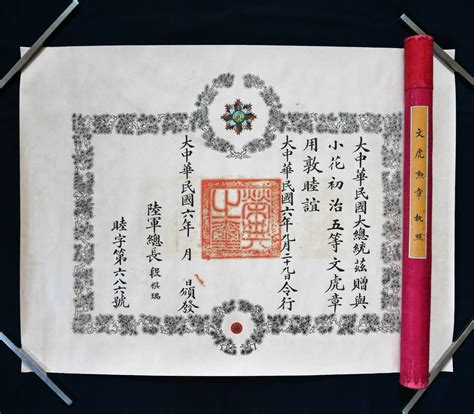 文虎勲章執照
大中華民國大總統茲贈與
小花初治五等文虎章
用敦睦誼
大中華民國六年九月二十九日令行
大中華民國六年 月 日頒發
陸軍總長段祺瑞
睦字第六八六號
榮典之璽